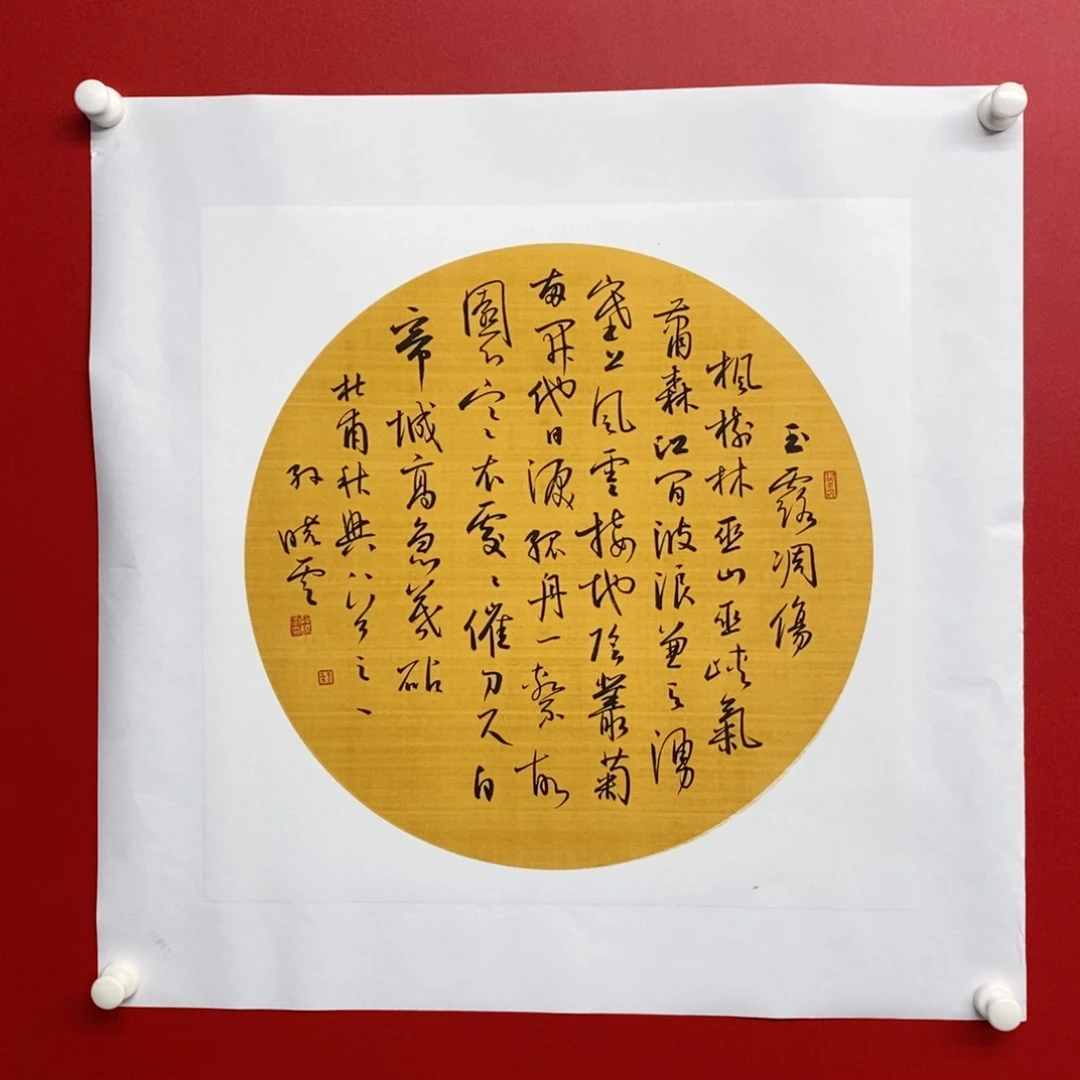 玉露凋傷
楓樹林巫山巫峽氣
蕭森江間波浪兼天湧
塞上風雲接地陰叢菊
兩開他日淚孤舟一繫故
園心寒衣處〻催刀尺白
帝城高急暮砧
杜甫秋興八首之一
孫曉雲